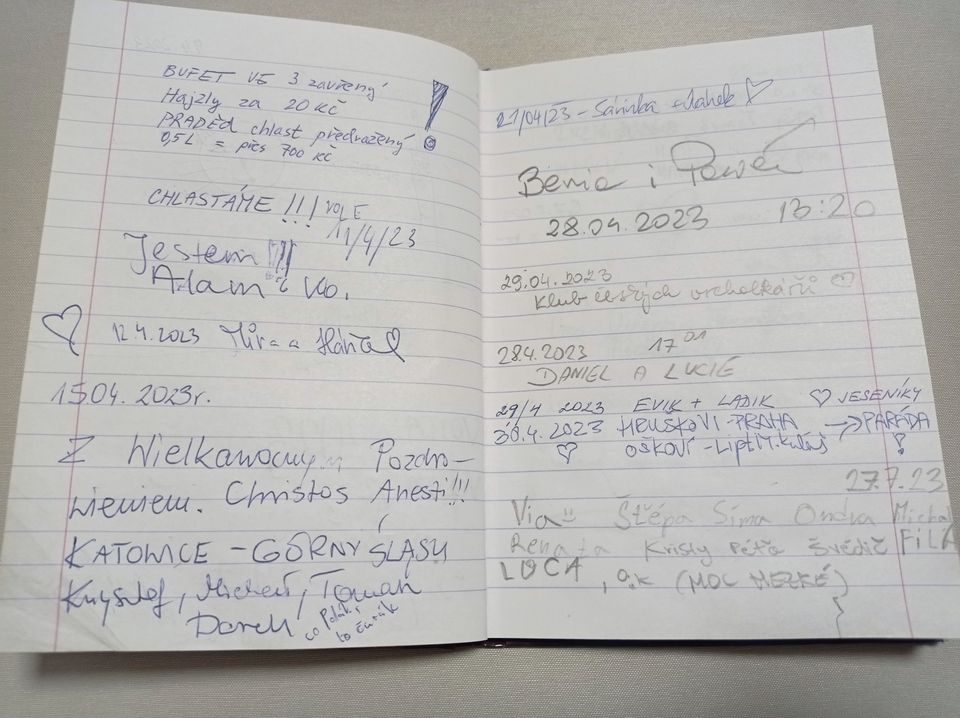 BUFET VŠ 3 zavřený
Hajzly za 20 Kč
PRADĚD chlast předražený
0,5L = přes 700 kč
CHLASTÁME !!! VOLE
11/4/23
Jestem
Adam i Vo.
12.4.2023 Míra a
15.04.2023r.
Z Wielkanocnym Pozdro-
wieniem. Christos Anesti!!!
KATOWICE - GÓRNY ŚLĄSK
Krzysztof, Michał, Tomek
Darek
co Polák,
to čurák
21/04/23 - Sárinka + Jahek
Benia i Paweł
28.04.2023 13:20
29.04.2023
Klub českých vrcholkářů
28.4.2023 17 01
DANIEL A LUCIE
29/4 2023 EVIK + LADIK JESENÍKY
30.4.2023 HRUŠKOVI - PRAHA → PARÁDA !
OŠKOVI - Lipt. Mikuláš
27.7.23
Via Štěpa Sima Ondra Michal
Renata Kristy Péťa Švédič FILA
LUCA, (MOC HEZKÉ)